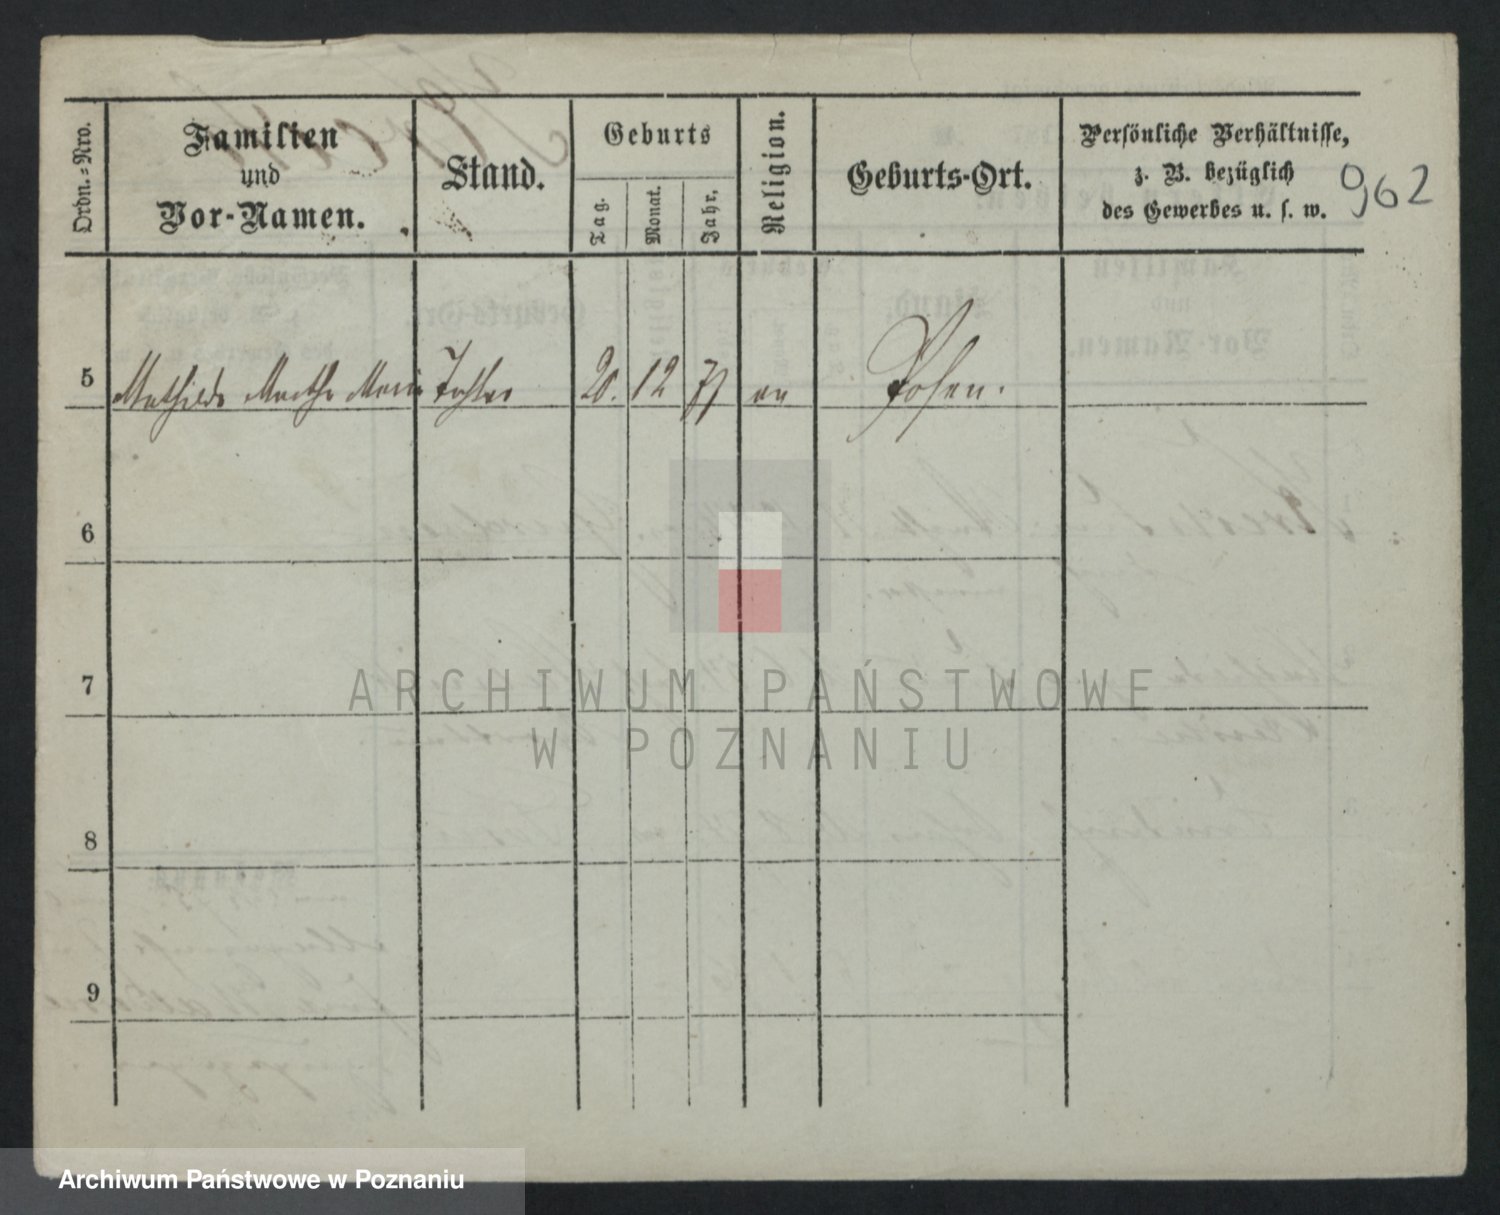 Ordn.=Nro.
Familien
und
Vor-Namen.
Stand.
Geburts
Tag.
Monat.
Jahr.
Religion.
Geburts-Ort.
Persönliche Verhältnisse,
z. B. bezüglich
des Gewerbes u. s. w.
962
5 Mathilde Martha Marie Tochter 20. 12 71 ev Posen.
6
7
8
9
ARCHIWUM PAŃSTWOWE
W POZNANIU
Archiwum Państwowe w Poznaniu